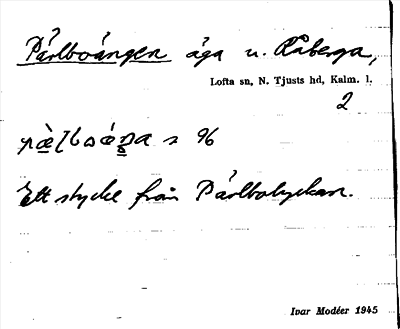 Pärlboängen äga u. Råberga,
Lofta sn, N. Tjusts hd, Kalm. l.
2
s 96
Ett stycke från Pärlbolyckan.
Ivar Modéer 1945